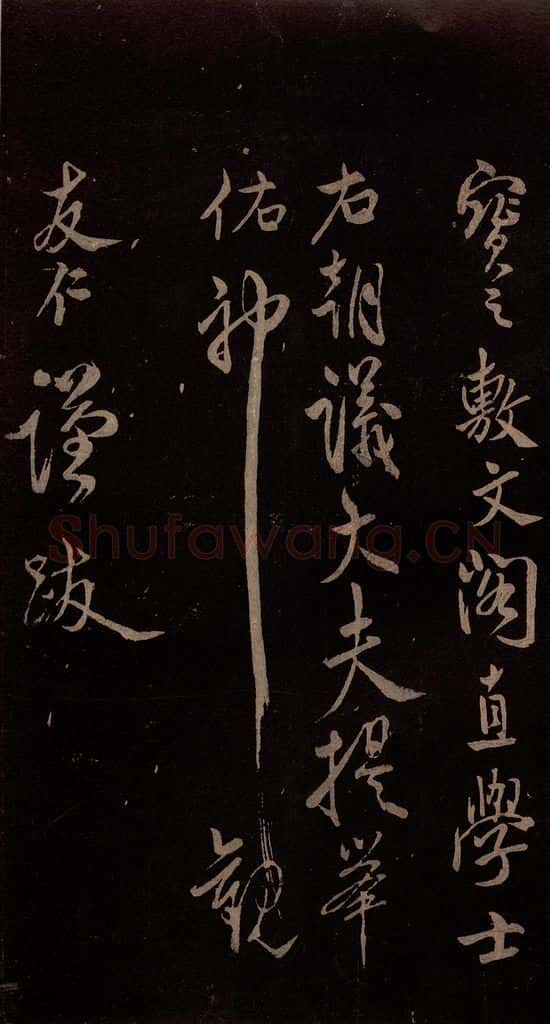 寶之敷文閣直學士
右朝議大夫提舉
佑神觀
友仁謹跋
Shufawang.CN